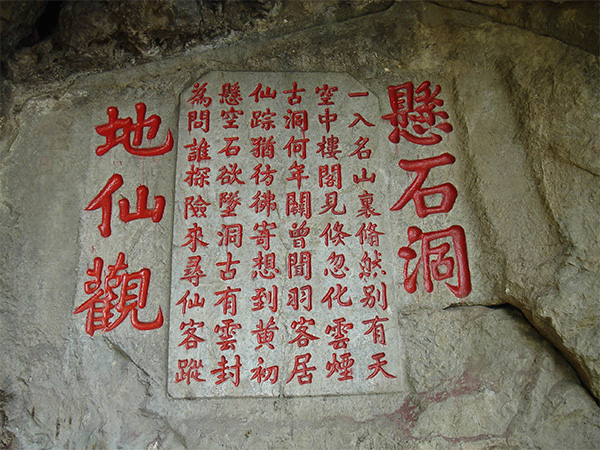 懸石洞
一入名山裏脩然别有天
空中樓閣見倏忽化雲煙
古洞何年闢曾聞羽客居
仙踪猶彷彿寄想到黄初
懸空石欲墜洞古有雲封
為問誰探險來尋仙客蹤
地仙觀